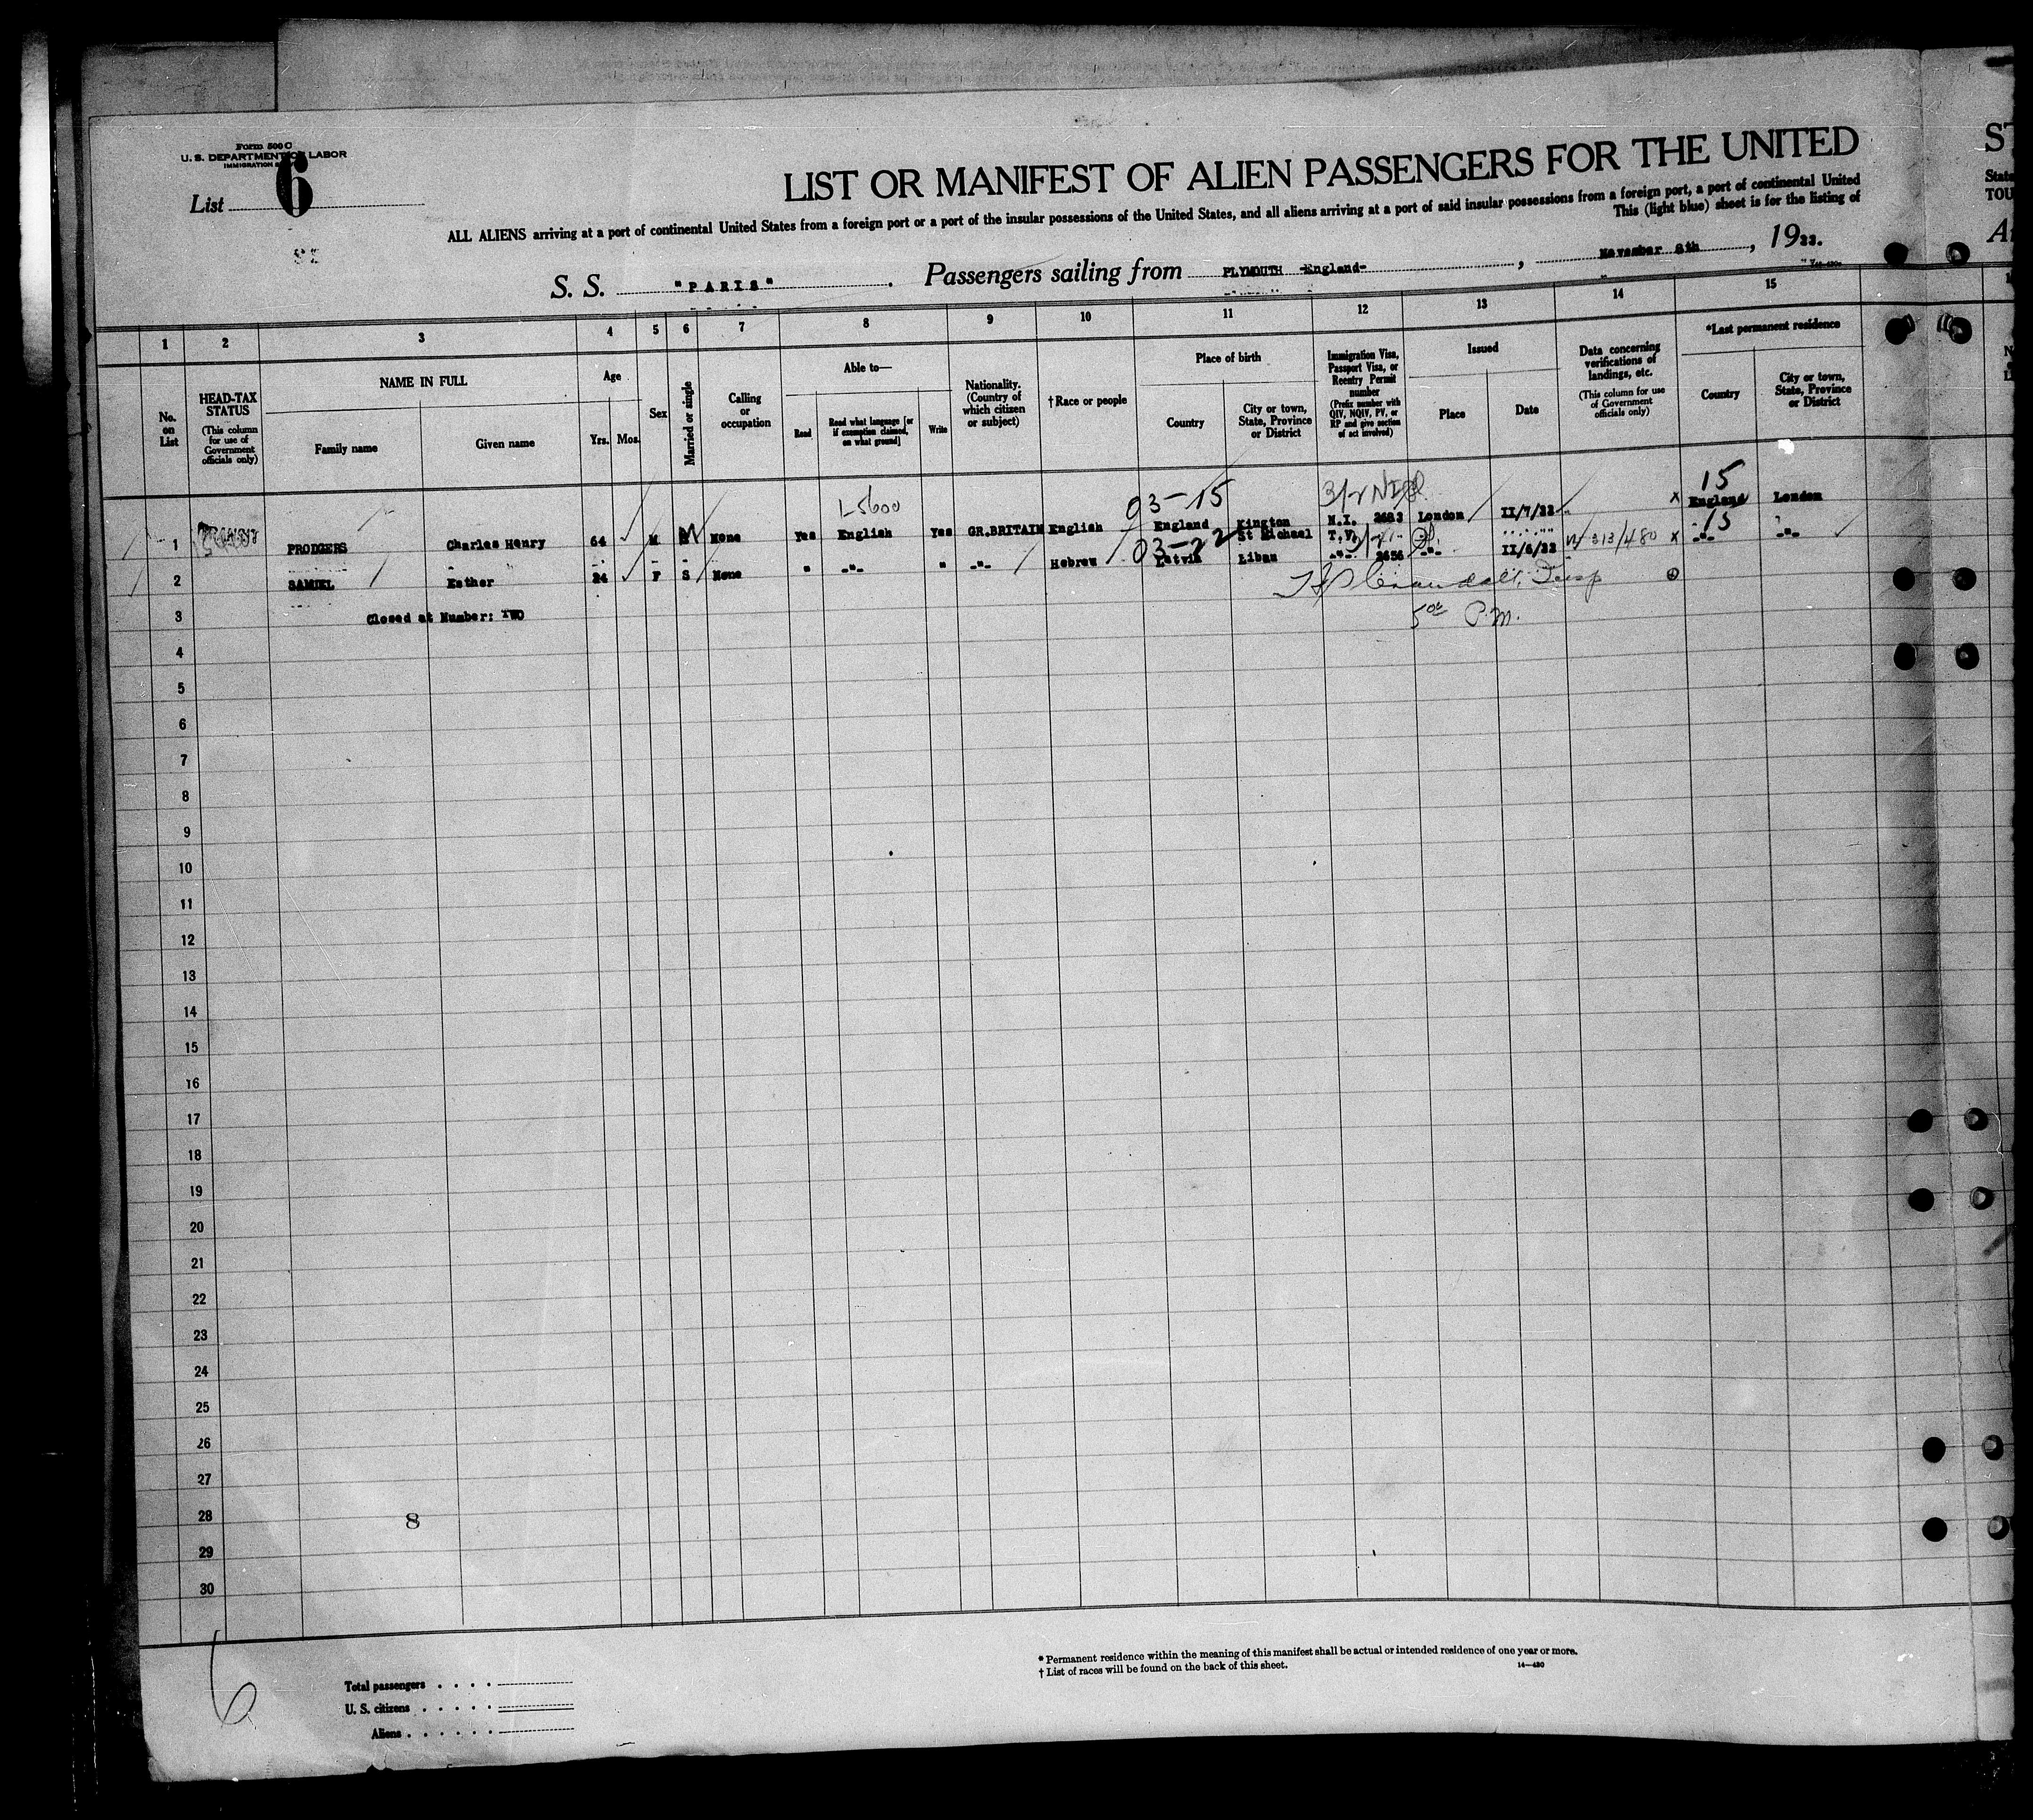 Form 500 C
U. S. DEPARTMENT OF LABOR
IMMIGRATION
List 6
LIST OR MANIFEST OF ALIEN PASSENGERS FOR THE UNITED
ST
ALL ALIENS arriving at a port of continental United States from a foreign port or a port of the insular possessions of the United States, and all aliens arriving at a port of said insular possessions from a foreign port, a port of continental United
State
This (light blue) sheet is for the listing of
TOU
S. S. "PARIS". Passengers sailing from PLYMOUTH -England-, November 8th, 1933.
1 2 3 4 5 6 7 8 9 10 11 12 13 14 15
No. on List
HEAD-TAX STATUS
(This column for use of Government officials only)
NAME IN FULL
Family name
Given name
Age
Yrs. Mos.
Sex
Married or single
Calling or occupation
Able to—
Read
Read what language [or if exemption claimed, on what ground]
Write
Nationality. (Country of which citizen or subject)
†Race or people
Place of birth
Country
City or town, State, Province or District
Immigration Visa, Passport Visa, or Reentry Permit number
(Prefix number with QIV, NQIV, PV, or RP and give section of act involved)
Issued
Place
Date
Data concerning verifications of landings, etc.
(This column for use of Government officials only)
*Last permanent residence
Country
City or town, State, Province or District
1-5600 03-15 15
1 PRODGERS Charles Henry 64 M M None Yes English Yes GR.BRITAIN English England Kington St Michael N.I. T.V. London II/7/33 x England London
03-22 15
2 SAMUEL Esther 24 F S None " -"- " -"- Hebrew Latvia Libau -"- 2656 -"- II/6/33 313/480 x -"- -"-
Crandall, Insp
3 Closed at Number: TWO
5 P.M.
4
5
6
7
8
9
10
11
12
13
14
15
16
17
18
19
20
21
22
23
24
25
26
27
28 8
29
30
6
* Permanent residence within the meaning of this manifest shall be actual or intended residence of one year or more.
† List of races will be found on the back of this sheet.
14—430
Total passengers
U. S. citizens
Aliens